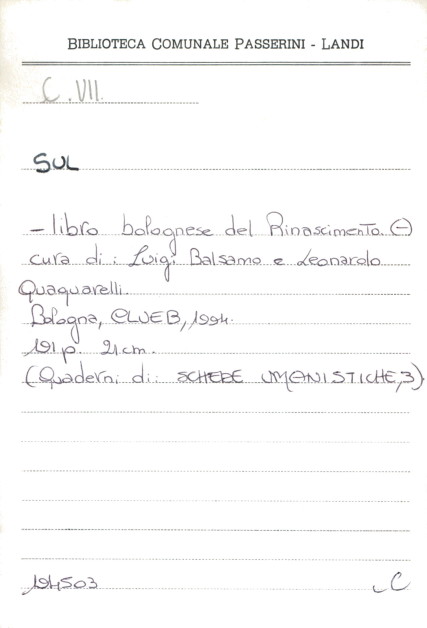 BIBLIOTECA COMUNALE PASSERINI - LANDI
C.VII.
SUL
- libro bolognese del Rinascimento. (-)
cura di: Luigi Balsamo e Leonardo
Quaquarelli.
Bologna, CLUEB, 1994.
191 p. 21 cm.
(Quaderni di: SCHEDE UMANISTICHE, 3)
194503 C